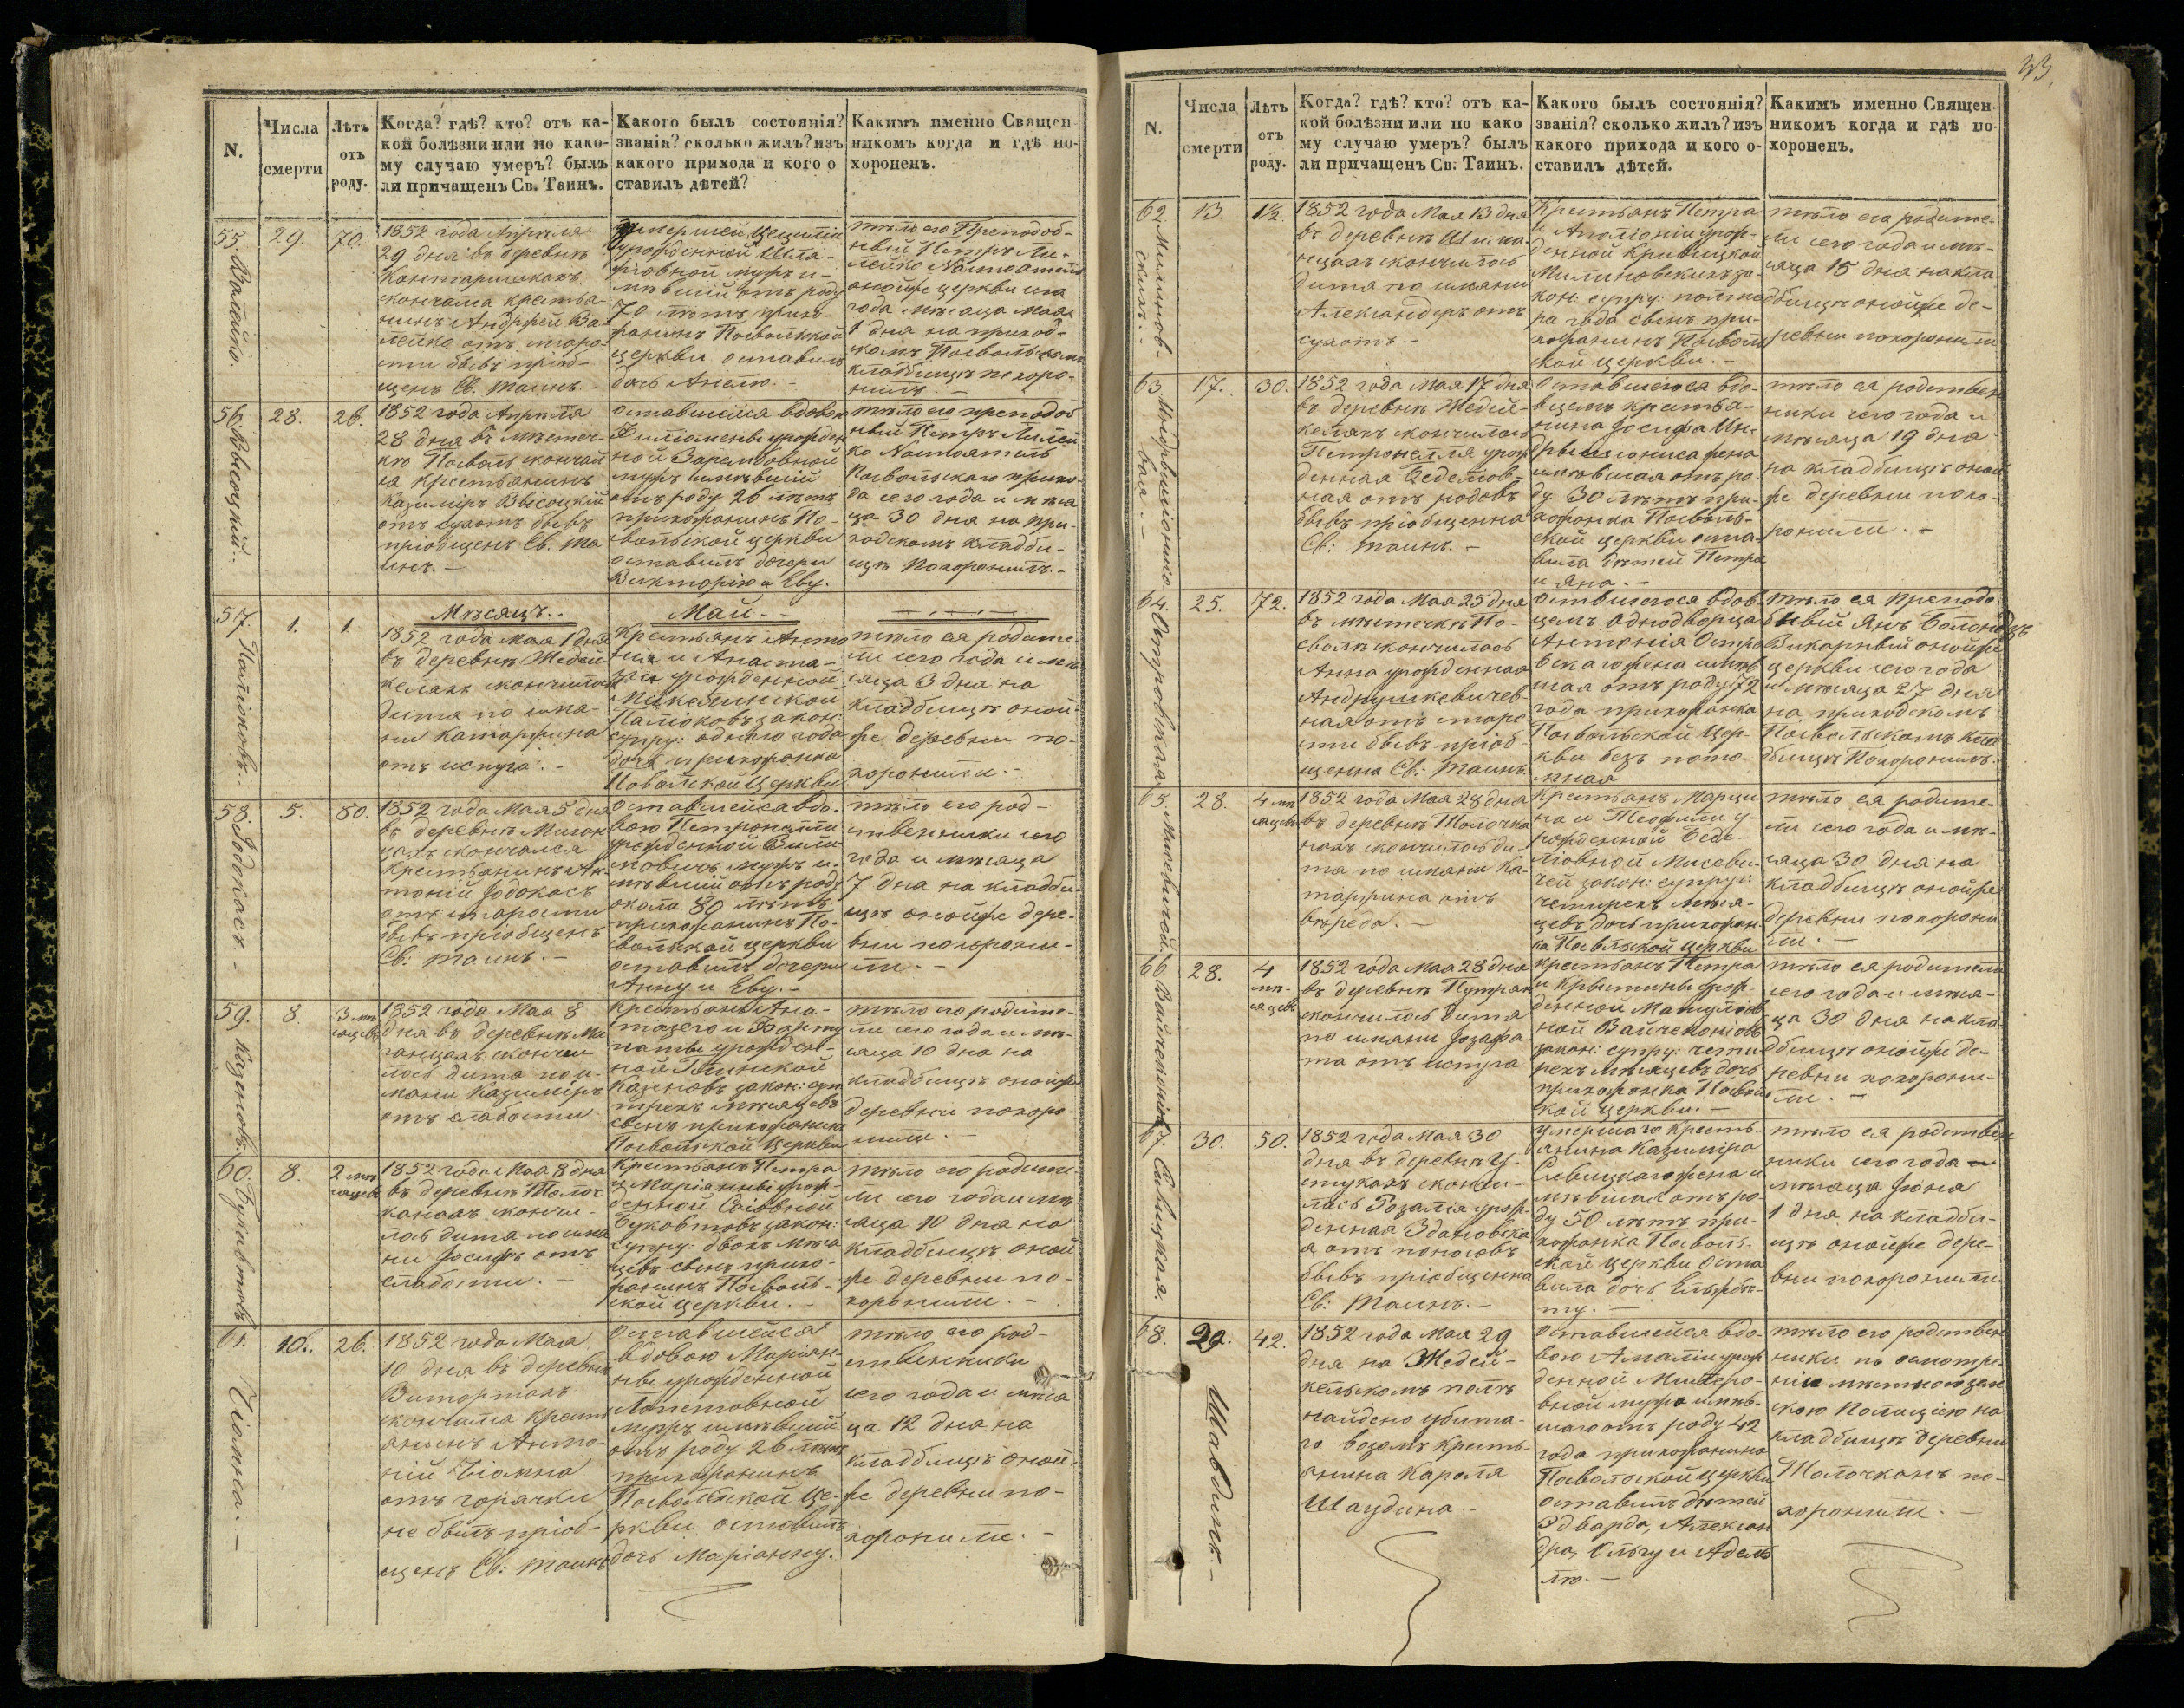 N.
Числа
смерти
Лѣтъ
отъ
роду.
Когда? гдѣ? кто? отъ ка-
кой болѣзни или по како-
му случаю умеръ? былъ
ли причащенъ Св. Таинъ.
Какого былъ состоянія?
званія? сколько жилъ? изъ
какого прихода и кого о
ставилъ дѣтей?
Какимъ именно Священ-
никомъ когда и гдѣ по-
хороненъ.
55. Валейко.
29.
70.
1852 года Апрѣля
29 дня въ деревнѣ
скончался крестья-
нинъ Андрей Ва-
лейко отъ старо-
сти бывъ пріоб-
щенъ Св. Таинъ. -
умершей Цециліи
урожденной
мужъ и-
мѣвшій отъ роду
70 лѣтъ прихо-
жанинъ Посвольской
церкви оставилъ
дочь Анелю. -
тѣло его Преподоб-
ный Петръ Ли-
лейко Настоятель
онойже церкви сего
года мѣсяца Мая
1 дня на приход-
скомъ Посвольскомъ
кладбищѣ похоро-
нилъ. -
56. Высоцкій.
28.
26.
1852 года Апрѣля
28 дня въ мѣстеч-
кѣ Посволь скончал
ся крестьянинъ
Казиміръ Высоцкій
отъ сухотъ бывъ
пріобщенъ Св: Та
инъ. -
оставшейся вдовою
Филіомены урожден
ной Зарембовной
мужъ имѣвшій
отъ роду 26 лѣтъ
прихожанинъ По-
свольской церкви
оставилъ дочери
Викторію и Еву.
тѣло его преподоб
ный Петръ Лилей
ко Настоятель
Посвольскаго прихо-
да сего года и мѣся
ца 30 дня на при-
ходскомъ кладби-
щѣ похоронилъ. -
Мѣсяцъ. -
Май. -
57. Паліоковъ.
1.
1.
1852 года Мая 1 дня
въ деревнѣ Жедей-
келяхъ скончилось
дитя по име-
ни Катаржина
отъ испуга. -
Крестьянъ Анто
нія и Анаста-
зіи урожденной
Паліоковъ закон:
супру: одного года
дочь прихожанка
Посвольской Церкви
тѣло ея родите-
ли сего года и мѣ
сяца 3 дня на
кладбищѣ оной-
же деревни по-
хоронили. -
58. Іодокасъ. -
5.
80.
1852 года Мая 5 дня
въ деревнѣ Мигон
цахъ скончался
Крестьянинъ Ан-
тоній Іодокасъ
отъ старости
бывъ пріобщенъ
Св: Таинъ. -
оставшейся вдо-
вою Петронелли
урожденной
мужъ и-
мѣвшій отъ роду
окола 80 лѣтъ
прихожанинъ По-
свольской церкви
оставилъ дочери
Анну и Еву. -
тѣло его род-
ственники сего
года и мѣсяца
7 дня на кладби-
щѣ онойже дере-
вни похорони-
ли. -
59. Казеновъ.
8.
3 мѣ
сяцевъ
1852 года Мая 8
дня въ деревнѣ Ми
ганцахъ скончи-
лось дитя по и-
мени Казиміръ
отъ слабости
Крестьянъ Ана-
стазего и
урожден-
ной
Казеновъ закон: супр
трехъ мѣсяцевъ
сынъ прихожанинъ
Посвольской Церкви
тѣло его родите-
ли сего года и мѣ-
сяца 10 дня на
кладбищѣ онойже
деревни похоро-
нили. -
60. Букавтовъ
8.
2 мѣ
сяцевъ
1852 года Мая 8 дня
въ деревнѣ Толоч
канахъ скончи-
лось дитя по име
ни Іосифъ отъ
слабости. -
Крестьянъ Петра
и Маріанны урож-
денной
Букавтовъ закон:
супру: двохъ мѣся
цевъ сынъ прихо-
жанинъ Посволь-
ской церкви. -
тѣло его родите-
ли сего года и мѣ
сяца 10 дня на
кладбищѣ оной
же деревни по-
хоронили. -
61. Чіамна. -
10.
26.
1852 года Мая
10 дня въ деревнѣ
скончался крест
янинъ Анто-
ній Чіамна
отъ горячки
не былъ пріоб-
щенъ Св: Таинъ
Оставшейся
вдовою Маріан-
ны урожденной
мужъ имѣвшій
отъ роду 26 лѣтъ
прихожанинъ
Посвольской Це-
ркви оставилъ
дочь Маріанну.
тѣло его род-
ственники
сего года и мѣся
ца 12 дня на
кладбищѣ оной-
же деревни по-
хоронили. -
N.
Числа
смерти
Лѣтъ
отъ
роду.
Когда? гдѣ? кто? отъ ка-
кой болѣзни или по како
му случаю умеръ? былъ
ли причащенъ Св. Таинъ.
Какого былъ состоянія?
званія? сколько жилъ? изъ
какого прихода и кого о-
ставилъ дѣтей.
Какимъ именно Священ-
никомъ когда и гдѣ по-
хороненъ.
62.
13.
1½.
1852 года Мая 13 дня
въ деревнѣ
скончилось
дитя по имени
Александеръ отъ
сухотъ. -
Крестьянъ Петра
и Аполоніи урож-
денной Кривицкой
за-
кон: супру: полтора
года сынъ при-
хожанинъ Посволь
ской церкви. -
тѣло его родите-
ли сего года и мѣ-
сяца 15 дня на кла-
дбищѣ онойже де-
ревни похоронили
63.
17.
30.
1852 года Мая 17 дня
въ деревнѣ Жедей-
келяхъ скончилась
Петронелля урож
денная
отъ родовъ
бывъ пріобщенна
Св: Таинъ. -
Оставшегося вдо-
вцемъ крестья-
нина Іосифа
жена
имѣвшая отъ ро-
ду 30 лѣтъ при-
хожанка Посволь-
ской церкви оста-
вила дѣтей Петра
и Яна. -
тѣло ея родствен
ники сего года и
мѣсяца 19 дня
на кладбищѣ оной
же деревни похо-
ронили. -
64. Островская.
25.
72.
1852 года Мая 25 дня
въ мѣстечкѣ По-
сволѣ скончилась
Анна урожденная
Андрушкевичев-
ная отъ старо-
сти бывъ пріоб-
щенна Св: Таинъ.
Оствшегося вдов
цемъ однодворца
Антонія Остро
вскаго жена имѣв
шая отъ роду 72
года прихожанка
Посвольской Цер-
кви безъ пото-
мная
тѣло ея Преподо
бный Янъ
Викарный онойже
церкви сего года
и мѣсяца 27 дня
на приходскомъ
Посвольскомъ кла
дбищѣ Похоронилъ.
65. Мисевичей.
28.
4 мѣ
сяцевъ
1852 года Мая 28 дня
въ деревнѣ Толочка
нахъ скончилось ди-
тя по имени Ка-
таржина отъ
вереда. -
Крестьянъ Марци
на и Теофили у-
рожденной Беде-
ліовной Мисеви-
чей закон: супру:
четырехъ мѣся-
цевъ дочь прихожан
ка Посвольской церкви
тѣло ея родите-
ли сего года и мѣ-
сяца 30 дня на
кладбищѣ онойже
деревни похорони
ли. -
66.
28.
4
мѣ-
сяцевъ
1852 года Мая 28 дня
въ деревнѣ
скончилось дитя
по имени Іозафа-
та отъ испуга
Крестьянъ Петра
и Крыстины урож-
денной
закон: супру: четы-
рехъ мѣсяцевъ дочь
прихожанка Посволь
ской церкви. -
тѣло ея родители
сего года и мѣся-
ца 30 дня на кла-
дбищѣ онойже де-
ревни похорони-
ли. -
67. Савицкая.
30.
50.
1852 года Мая 30
дня въ деревнѣ У-
стукахъ скончи-
лась Розалія урож-
денная Здановска
я отъ поносовъ
бывъ пріобщенна
Св: Таинъ. -
умершаго кресть-
янина Казиміра
Савицкаго жена и
мѣвшая отъ ро-
ду 50 лѣтъ при-
хожанка Посволь-
ской церкви Оста
вила дочь Ельжбѣ-
ту. -
тѣло ея родствен
ники сего года и
мѣсяца Іюня
1 дня на кладби-
щѣ онойже дере-
вни похоронили.
68. Шавдинъ. -
29.
42.
1852 года Мая 29
дня на Жедей-
кельскомъ полѣ
найдено убита-
го возомъ кресть-
янина Кароля
Шаудина. -
Оставшейся вдо-
вою Амаліи урож
денной
мужа имѣв-
шаго отъ роду 42
года прихожанина
Посвольской церкви
оставилъ дѣтей
Эдварда, Алексан
дра, Ольгу и Адель
лю. -
тѣло его родствен
ники по осмотре-
нію мѣстною зем
скою Полиціею на
кладбищѣ деревни
Толочканъ по-
хоронили. -